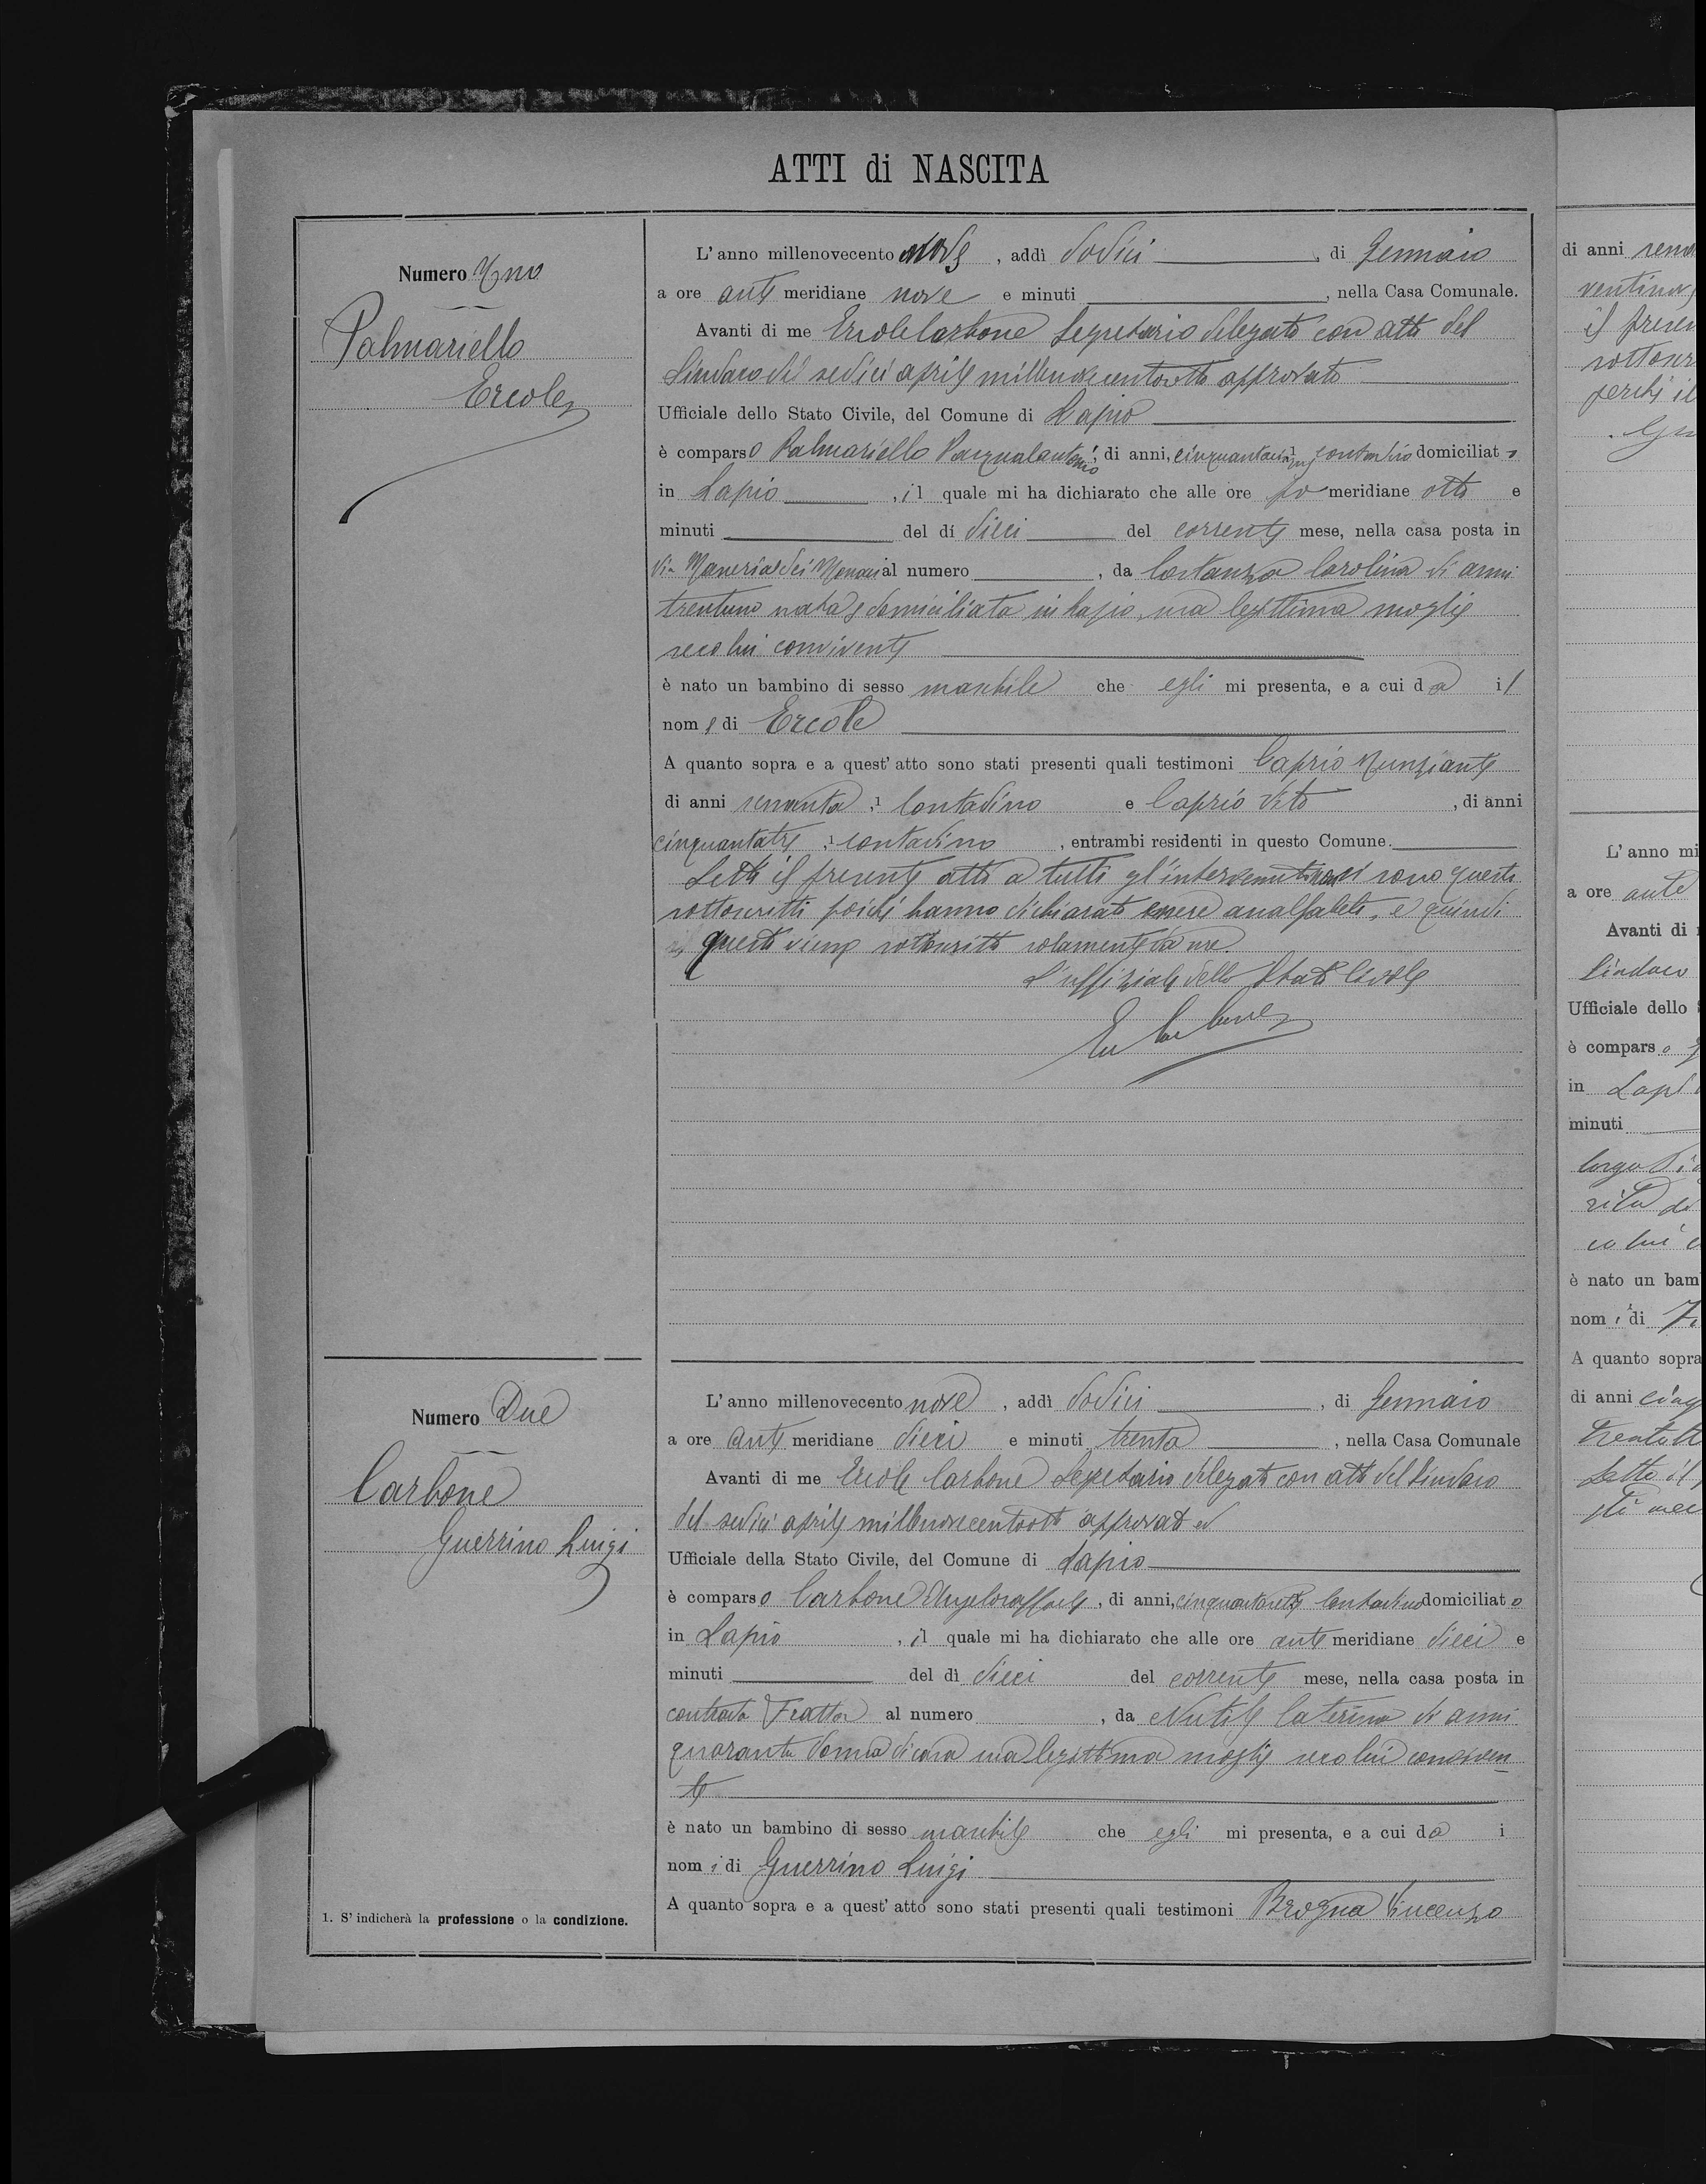 ATTI di NASCITA
Numero Uno
Palmariello
Ercole
L'anno millenovecento nove, addì dodici, di Gennaio
a ore ante meridiane nove e minuti, nella Casa Comunale.
Avanti di me Ercole Carbone Segretario delegato con atto del
Sindaco del sedici aprile millenovecentootto approvato
Ufficiale dello Stato Civile, del Comune di Lapio
è comparso Palmariello Pasqualantonio, di anni, contadino domiciliato
in Lapio, il quale mi ha dichiarato che alle ore po meridiane otto e
minuti del dì dieci del corrente mese, nella casa posta in
Via dei al numero, da Costanza Carolina di anni
trentuno nata e domiciliata in Lapio, sua legittima moglie
seco lui convivente
è nato un bambino di sesso maschile che egli mi presenta, e a cui dà il
nome di Ercole
A quanto sopra e a quest'atto sono stati presenti quali testimoni Caprio Nunziante
di anni sessanta,1 Contadino e Caprio Vito, di anni
cinquantatre,1 contadino, entrambi residenti in questo Comune.
Letto il presente atto a tutti gl'intervenuti non si sono questi
sottoscritti poichè hanno dichiarato essere analfabeti, e quindi
questo viene sottoscritto solamente da me.
L'uffiziale dello Stato Civile
Er Carbone
Numero Due
Carbone
Guerrino Luigi
1. S'indicherà la professione o la condizione.
L'anno millenovecento nove, addì dodici, di Gennaio
a ore ante meridiane dieci e minuti trenta, nella Casa Comunale
Avanti di me Ercole Carbone Segretario delegato con atto del Sindaco
del sedici aprile millenovecentootto approvato ed
Ufficiale della Stato Civile, del Comune di Lapio
è comparso Carbone Angeloraffaele, di anni, Contadino domiciliato
in Lapio, il quale mi ha dichiarato che alle ore ante meridiane dieci e
minuti del dì dieci del corrente mese, nella casa posta in
contrada Fratta al numero, da Nutile Caterina di anni
quaranta donna di casa sua legittima moglie seco lui conviven
te
è nato un bambino di sesso maschile che egli mi presenta, e a cui dà i
nomi di Guerrino Luigi
A quanto sopra e a quest'atto sono stati presenti quali testimoni Brogna Vincenzo
di anni
il presen
L'anno mi
a ore ante
Avanti di
Sindaco
Ufficiale dello
è comparso
in Lapio
minuti
largo
co lui
è nato un bam
nomi di
A quanto sopra
di anni cinq
Letto il